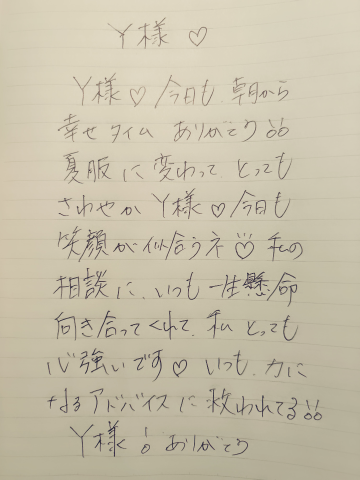 Y様♡
Y様♡今日も、朝から
幸せタイム ありがとう!!
夏服に変わって とっても
さわやか Y様♡今日も
笑顔が似合うネ♡ 私の
相談に、いつも 一生懸命
向き合ってくれて、私 とっても
心強いです♡ いつも、力に
なるアドバイスに救われてる!!
Y様! ありがとう